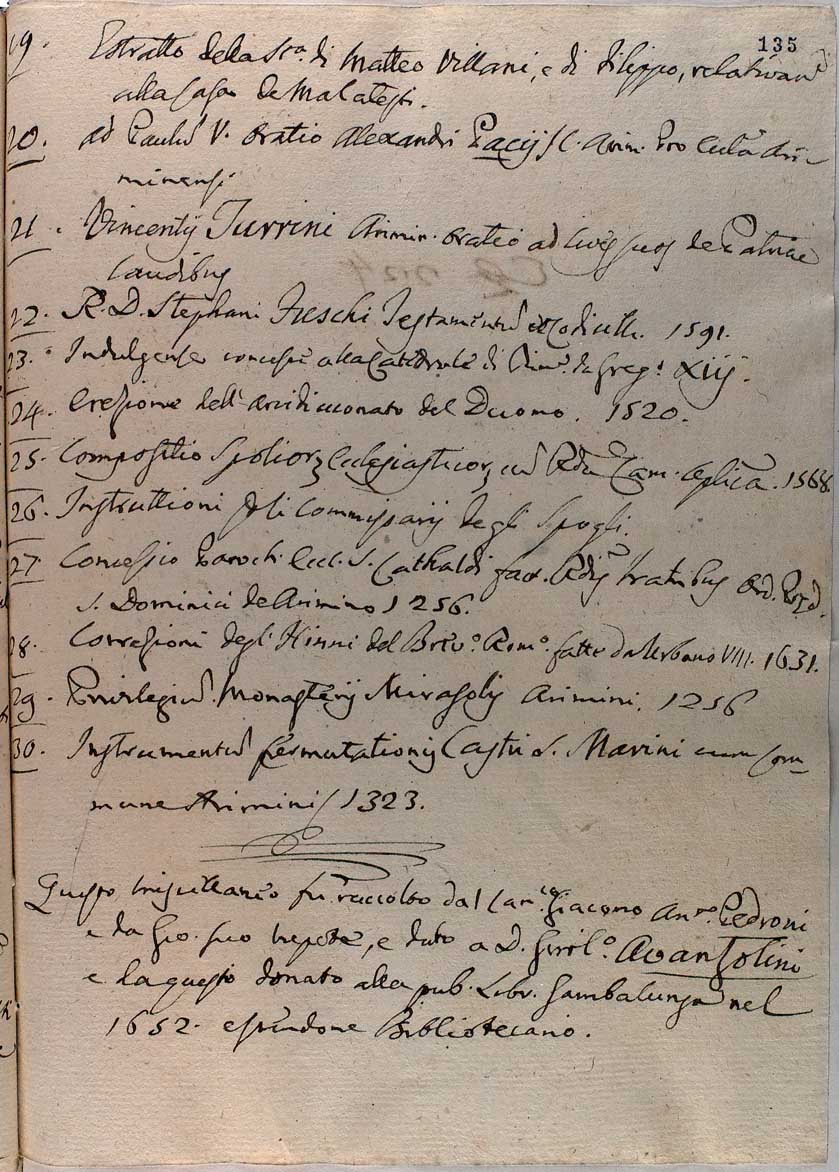 135
19. Estratto della Sta. di Matteo Villani, e di Filippo, relativam.
alla Casa de Malatesti.
20. ad Paulū V. Oratio Alexandri Pacij I.C. Arim. Pro Civita Ari-
minensi
21. Vincentij Turrini Arimin. Oratio ad Cives suos de Patriae
laudibus
22. R. D. Stephani Testamentū et Codicill. 1591.
23. Indulgenze concesse alla Catedrale di Rimo. da Grego. XIIJ.
24. Erezione dell'Arcidiaconato del Duomo. 1520.
25. Compositio Spolior. Ecclesiasticor. cū Rdā Cam. Aplica. 1568.
26. Instruttioni p li Commissarij degli Spogli.
27. Concessio Paroch. Eccl. S. Cathaldi fact. Rdis Fratribus Ord. Pred.
S. Dominici de Arimino 1256.
28. Correzioni degl'Hinni del Brevo. Romo. fatte da Urbano VIII. 1631.
29. Privilegiū Monasterij Mirasolis Arimini. 1256
30. Instrumentū permutationis Castri S. Marini cum Com-
mune Arimini 1323.
Questo miscellaneo fu raccolto dal Can.co Giacomo Anto. Pedroni
e da Gio. suo nepote, e dato a D. Girolo. Avantolini
e da questo donato alla pub. Libr. Gambalunga nel
1652. essendone Bibliotecario.